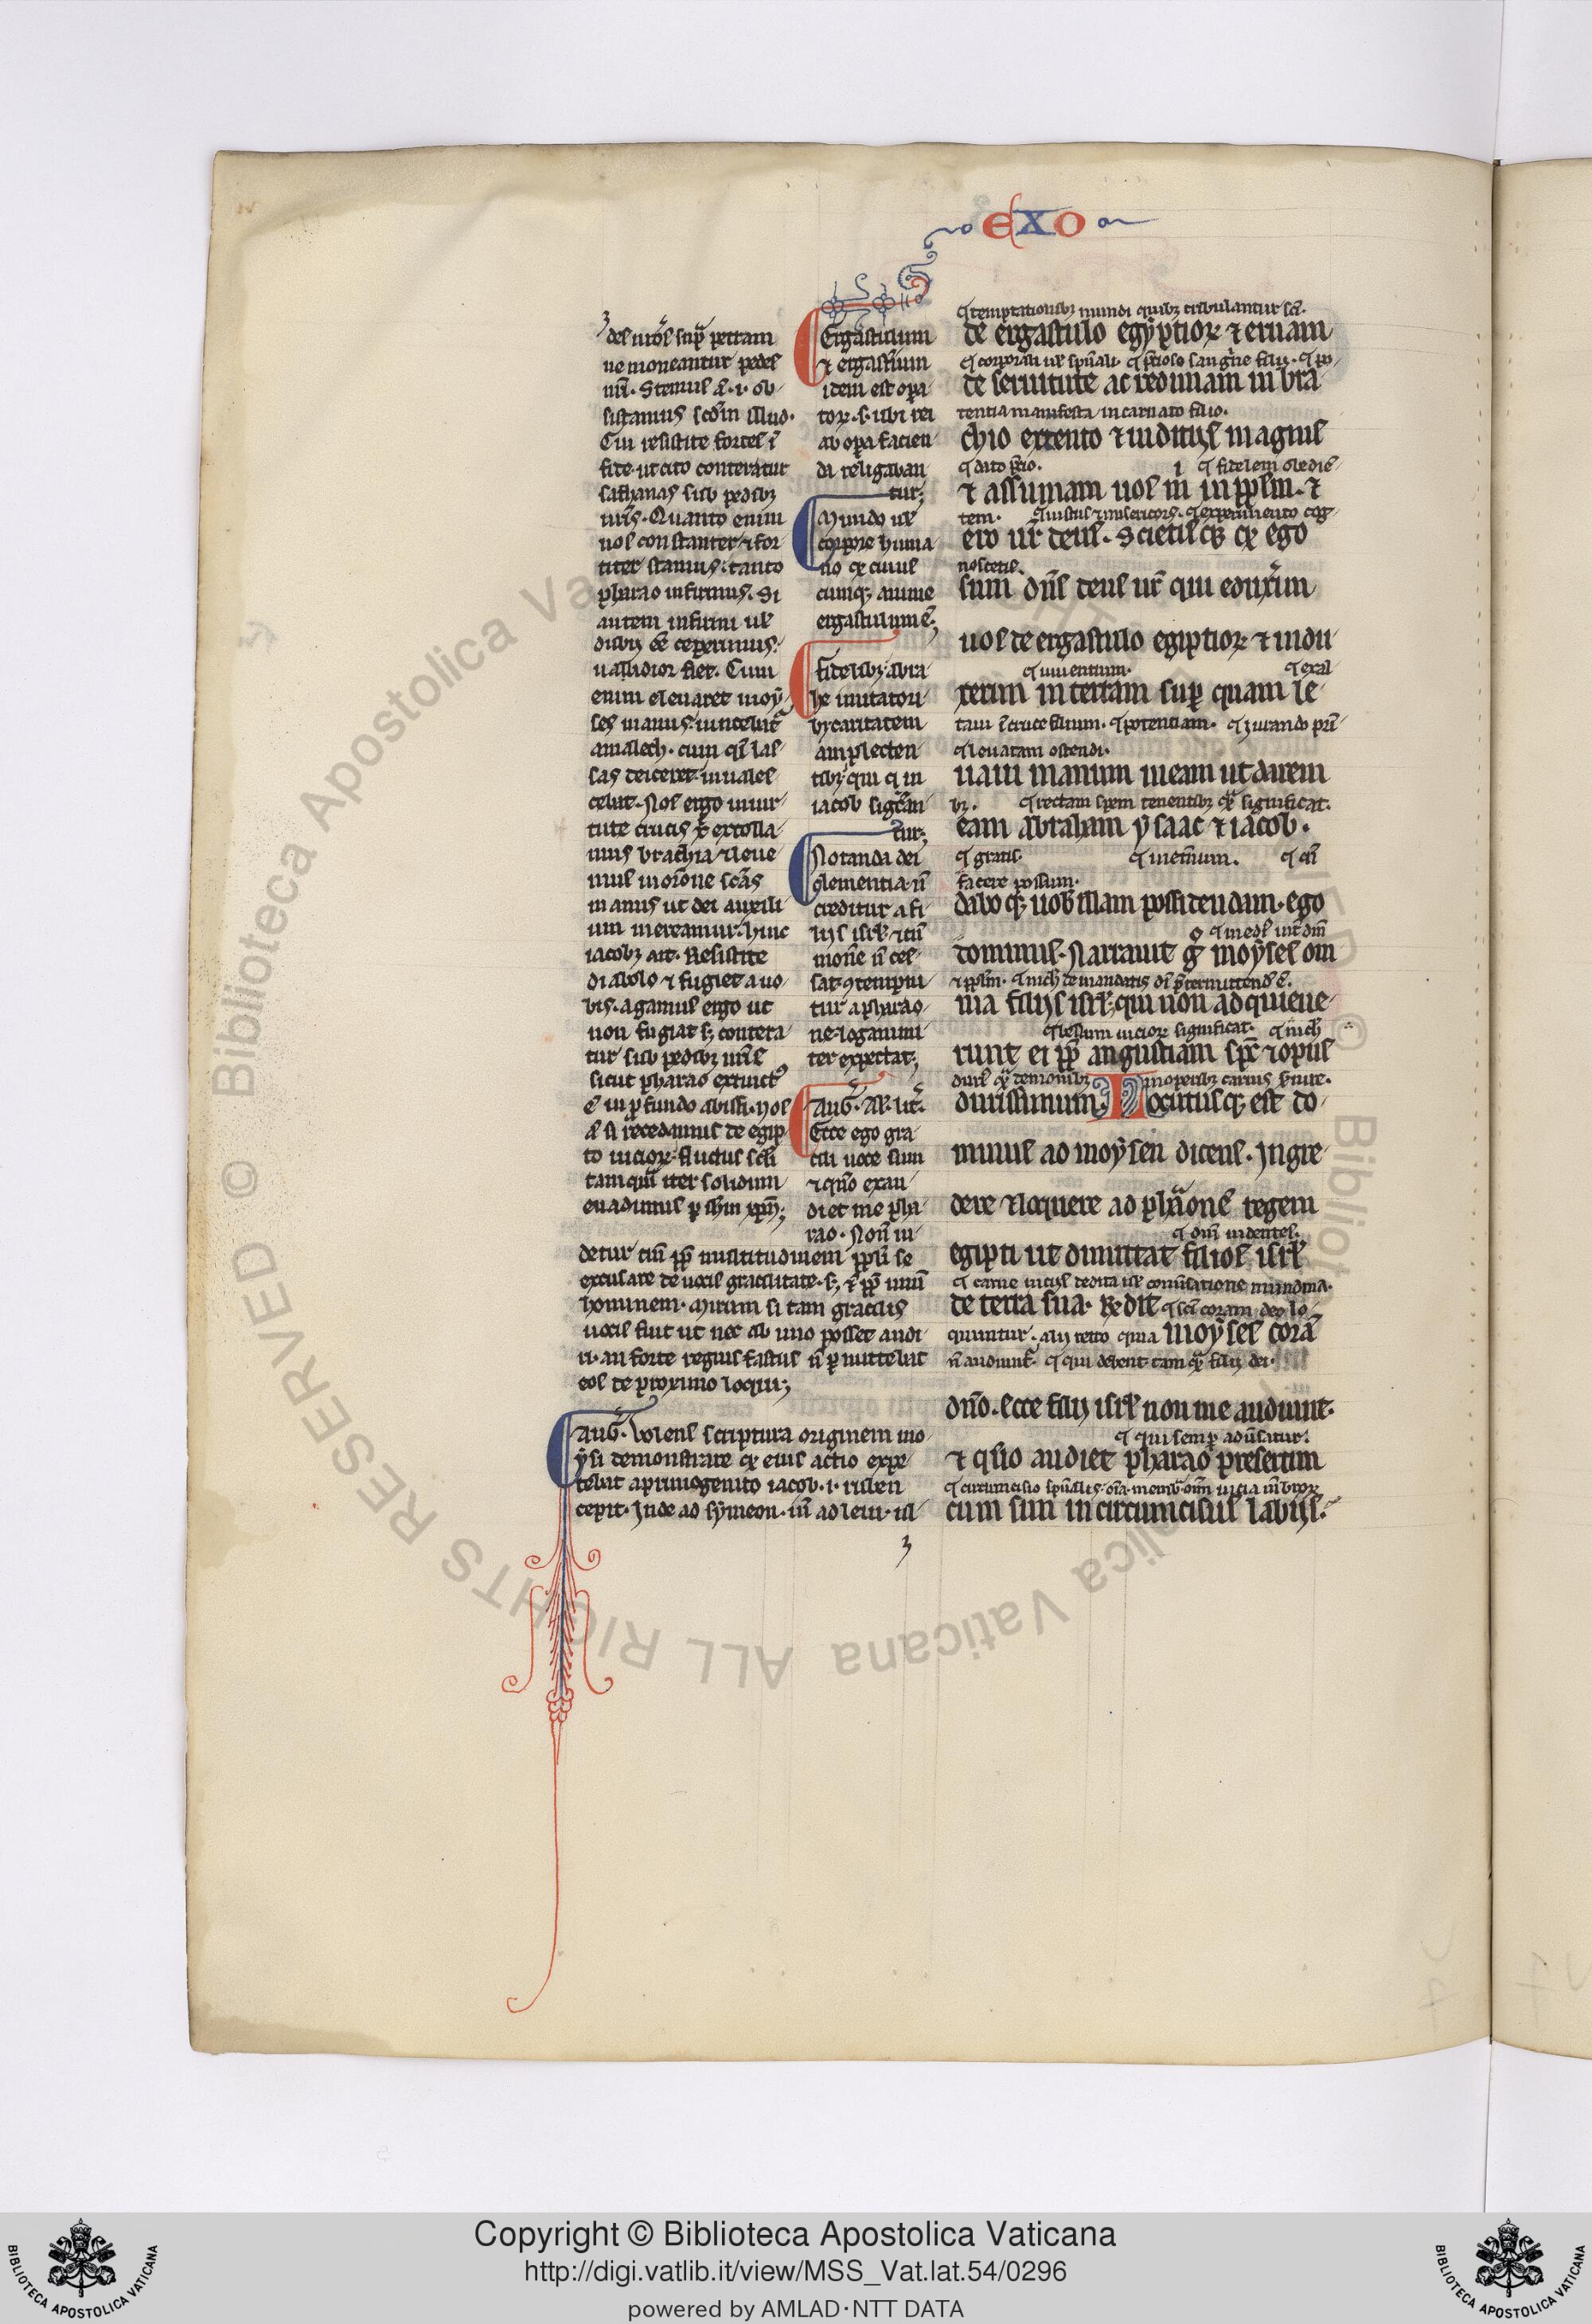 EXO
des nr̃os sup̃ petram
ne moueantur pedes
nr̃i. Stemus .i. ob
sistamus scđm illud.
Cui resistite fortes ĩ
fide. ut cito conteratur
sathanas sub pedibꝫ
ur̃is. Quanto enim
nos constanter ⁊ for
titer stamus: tanto
pharao infirmus. Si
autem infirmi ul̃
ualidior fiet. Cum
enim eleuaret moy
ses manus: uincebat̃
amalech. cum
sas deiceret: inuales
cebat. Nos ergo in uir
tute crucis xp̃i extolla
mus brachia ⁊ leue
mus in or̃one sc̃as
manus ut dei auxili
um mereamur. hinc
iacobꝫ ait. Resistite
diabolo ⁊ fugiet a uo
bis. agamus ergo ut
non fugiat sꝫ contera
tur sub pedibꝫ nr̃is
sicut pharao extinct⁹
ẽ in ꝓfundo abissi. Nos
si recedamus de egip
to uicioꝝ: fluctus sc̃li
tamqm̃ iter solidum
euadimus ꝑ ihm xp̃m;
Ergastulum
⁊ ergast̃ium
idem est opa
toꝝ. s. ubi rei
ab opa facien
da religaban
tur;
Mundo ul̃
corpore huma
no qđ cuius
cunqꝫ anime
ergastulum ẽ;
Fidelibꝫ abra
he imitatori
bꝫ caritatem
amplecten
tibꝫ qui q̃ in
iacob sig̃can
tur;
Notanda dei
clementia. ñ
creditur a fi
lijs isrl̃. ⁊ tñ
mone ñ ces
sat. ꝯtempni
tur a pharao
ne. loganimi
ter expectat;
Aug̃. ut̃.
Ecce ego gra
cili uoce sum
⁊ qñ̃o exau
diet me pha
rao. Non ui
detur tm̃ ꝓp̃ multitudinem ppl̃i se
excusare de uocis gracilitate. sꝫ ⁊ ꝓp̃ unũ
hominem. Mirum si tam gracilis
uocis fuit ut nec ab uno posset audi
ri. an forte regius fastus ñ ꝑmittebat
eos de proximo loqui;
Aug̃. Volens scriptura originem mo
ysi demonstrare qđ eius actio expe
tebat a primogenito iacob .i. ruben
cepit. Inde ad symeon. in̄ ad leui. ill
¶ temptationibꝫ mundi quibꝫ tribulantur sc̃i.
de ergastulo egyptioꝝ ⁊ eruam
¶ corporali ul̃ sp̃uali. ¶ p̃cioso sanguine filij. ¶ po
de seruitute ac redimam in bra
tentia manifesta incarnato filio.
chio extento ⁊ iuditijs magnis
¶ dato p̃cio. ¶ fidelem obedie
⁊ assumam uos m̃ in ppl̃m. ⁊
tem. ¶ iustus ⁊ misericors. ¶ experimento cog
ero ur̃ deus. Scietisqꝫ qđ ego
noscetis.
sum dñs deus ur̃ qui eduxim
uos de ergastulo egiptioꝝ ⁊ indu
¶ uiuentium. ¶ exal
xerim in terram sup quam le
tam ĩ cruce filium. ¶ potentiam. ¶ iurando
¶ leuatam ostendi.
uaui manum meam ut darem
bꝫ. ¶ rectam spem tenentibꝫ significat.
eam abraham ysaac ⁊ iacob.
¶ gratis. ¶ meritum.
facere possum.
daboqꝫ uob̃ illam possidendam. ego
dominus. Narrauit g̊ moyses om
⁊ ppl̃m. ¶ nich̃ de mandatis p̃termittend̃ ẽ.
nia filijs isrl̃: qui non adquieue
uicioꝝ significat. ¶ nich̃
runt ei ꝓp̃ angustiam sp̃c ⁊ opus
durĩ demonibꝫ in operibꝫ carnis s̃uire.
durissimum. Locutusqꝫ est do
minus ad moysen dicens. Ingre
dere ⁊ loquere ad phãonẽ regem
¶ dm̃ uidentes.
egipti ut dimittat filios isrl̃
mundana.
de terra sua. Redit̃ ¶ sc̃i coram deo lo
quuntur. alij retro quia moyses corã
ñ audiunt̃. ¶ qui debent tam filij dei.
dño. ecce filij isrl̃ non me audiunt.
¶ qui semp adũsatur.
⁊ qño audiet pharao presertim
¶ circumcisio sp̃ualis. om̃ia
cum sim incircumcisus labijs.
Copyright © Biblioteca Apostolica Vaticana
http://digi.vatlib.it/view/MSS_Vat.lat.54/0296
powered by AMLAD·NTT DATA
BIBLIOTECA APOSTOLICA VATICANA
BIBLIOTECA APOSTOLICA VATICANA
© Biblioteca Apostolica Vaticana ALL RIGHTS RESERVED